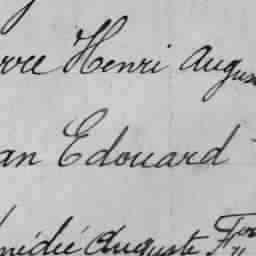 rre Henri Augus
an Edouard
médée Auguste